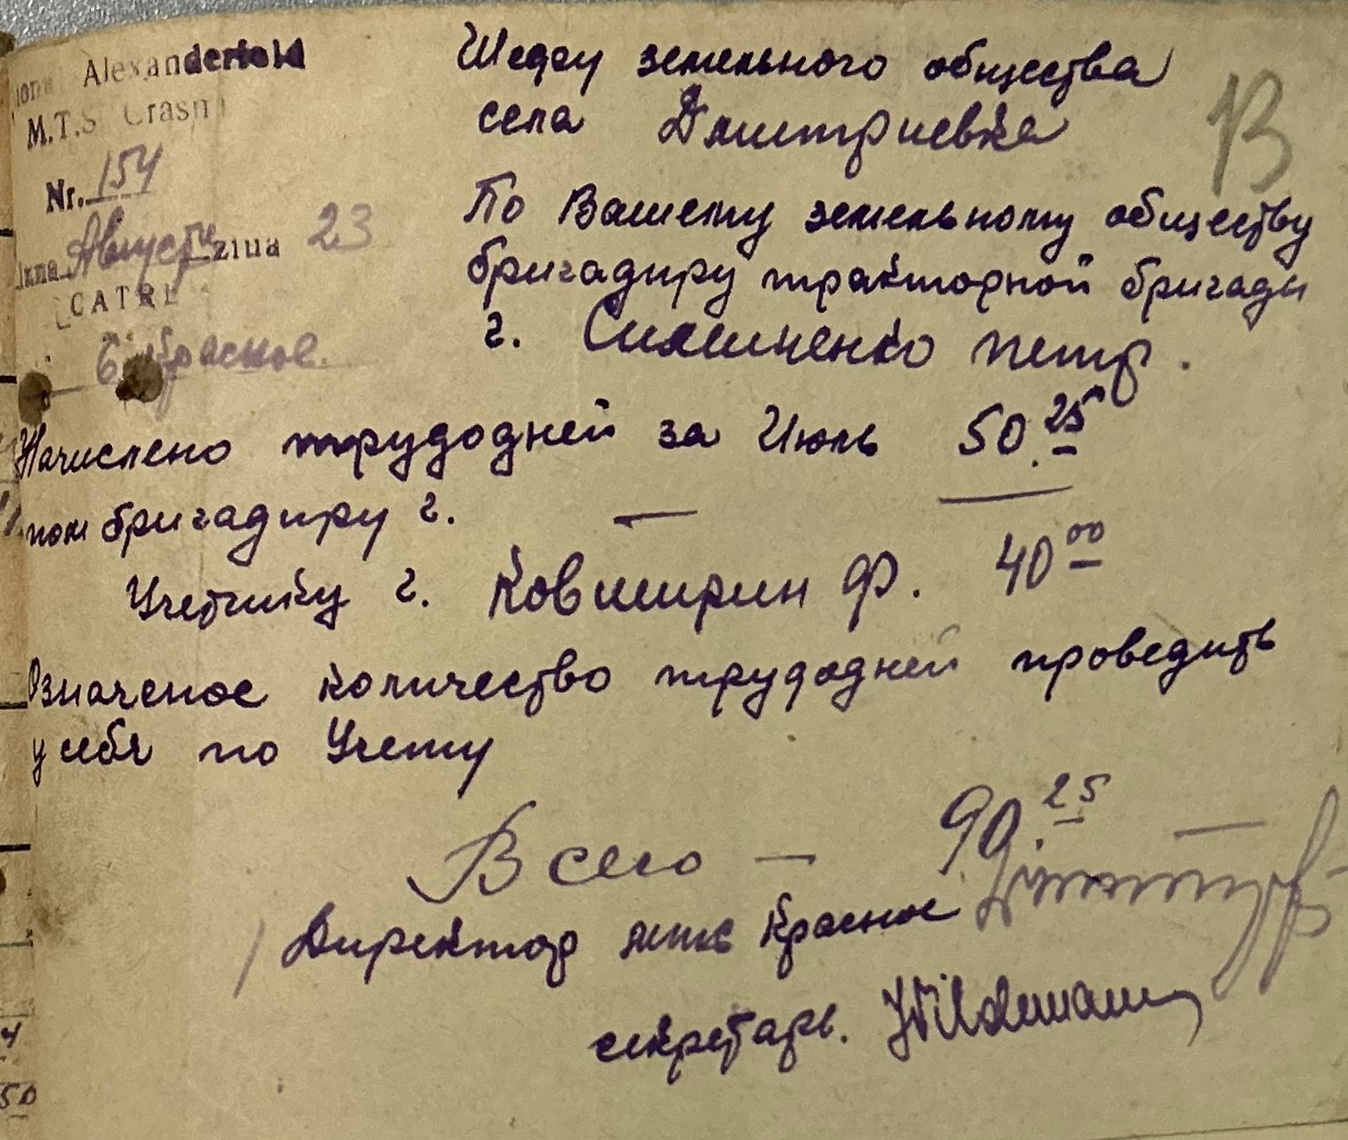 Alexanderfeld
M.T.S Crasn
Nr. 154
Августъ ziua 23
CATRE
Красное.
Шефу земельного общества
села Дмитриевка
13
По Вашему земельному обществу
бригадиру тракторной бригады
г. Симененко петр.
Начислено трудодней за Июль 50.25
пом бригадиру г. —
Учетчику г. Ковширин Ф. 40 00
Означеное количество трудодней проведить
у себя по Учету
Всего — 90.25
Директор мтс Красное
секретарь. Wildemann
4
50